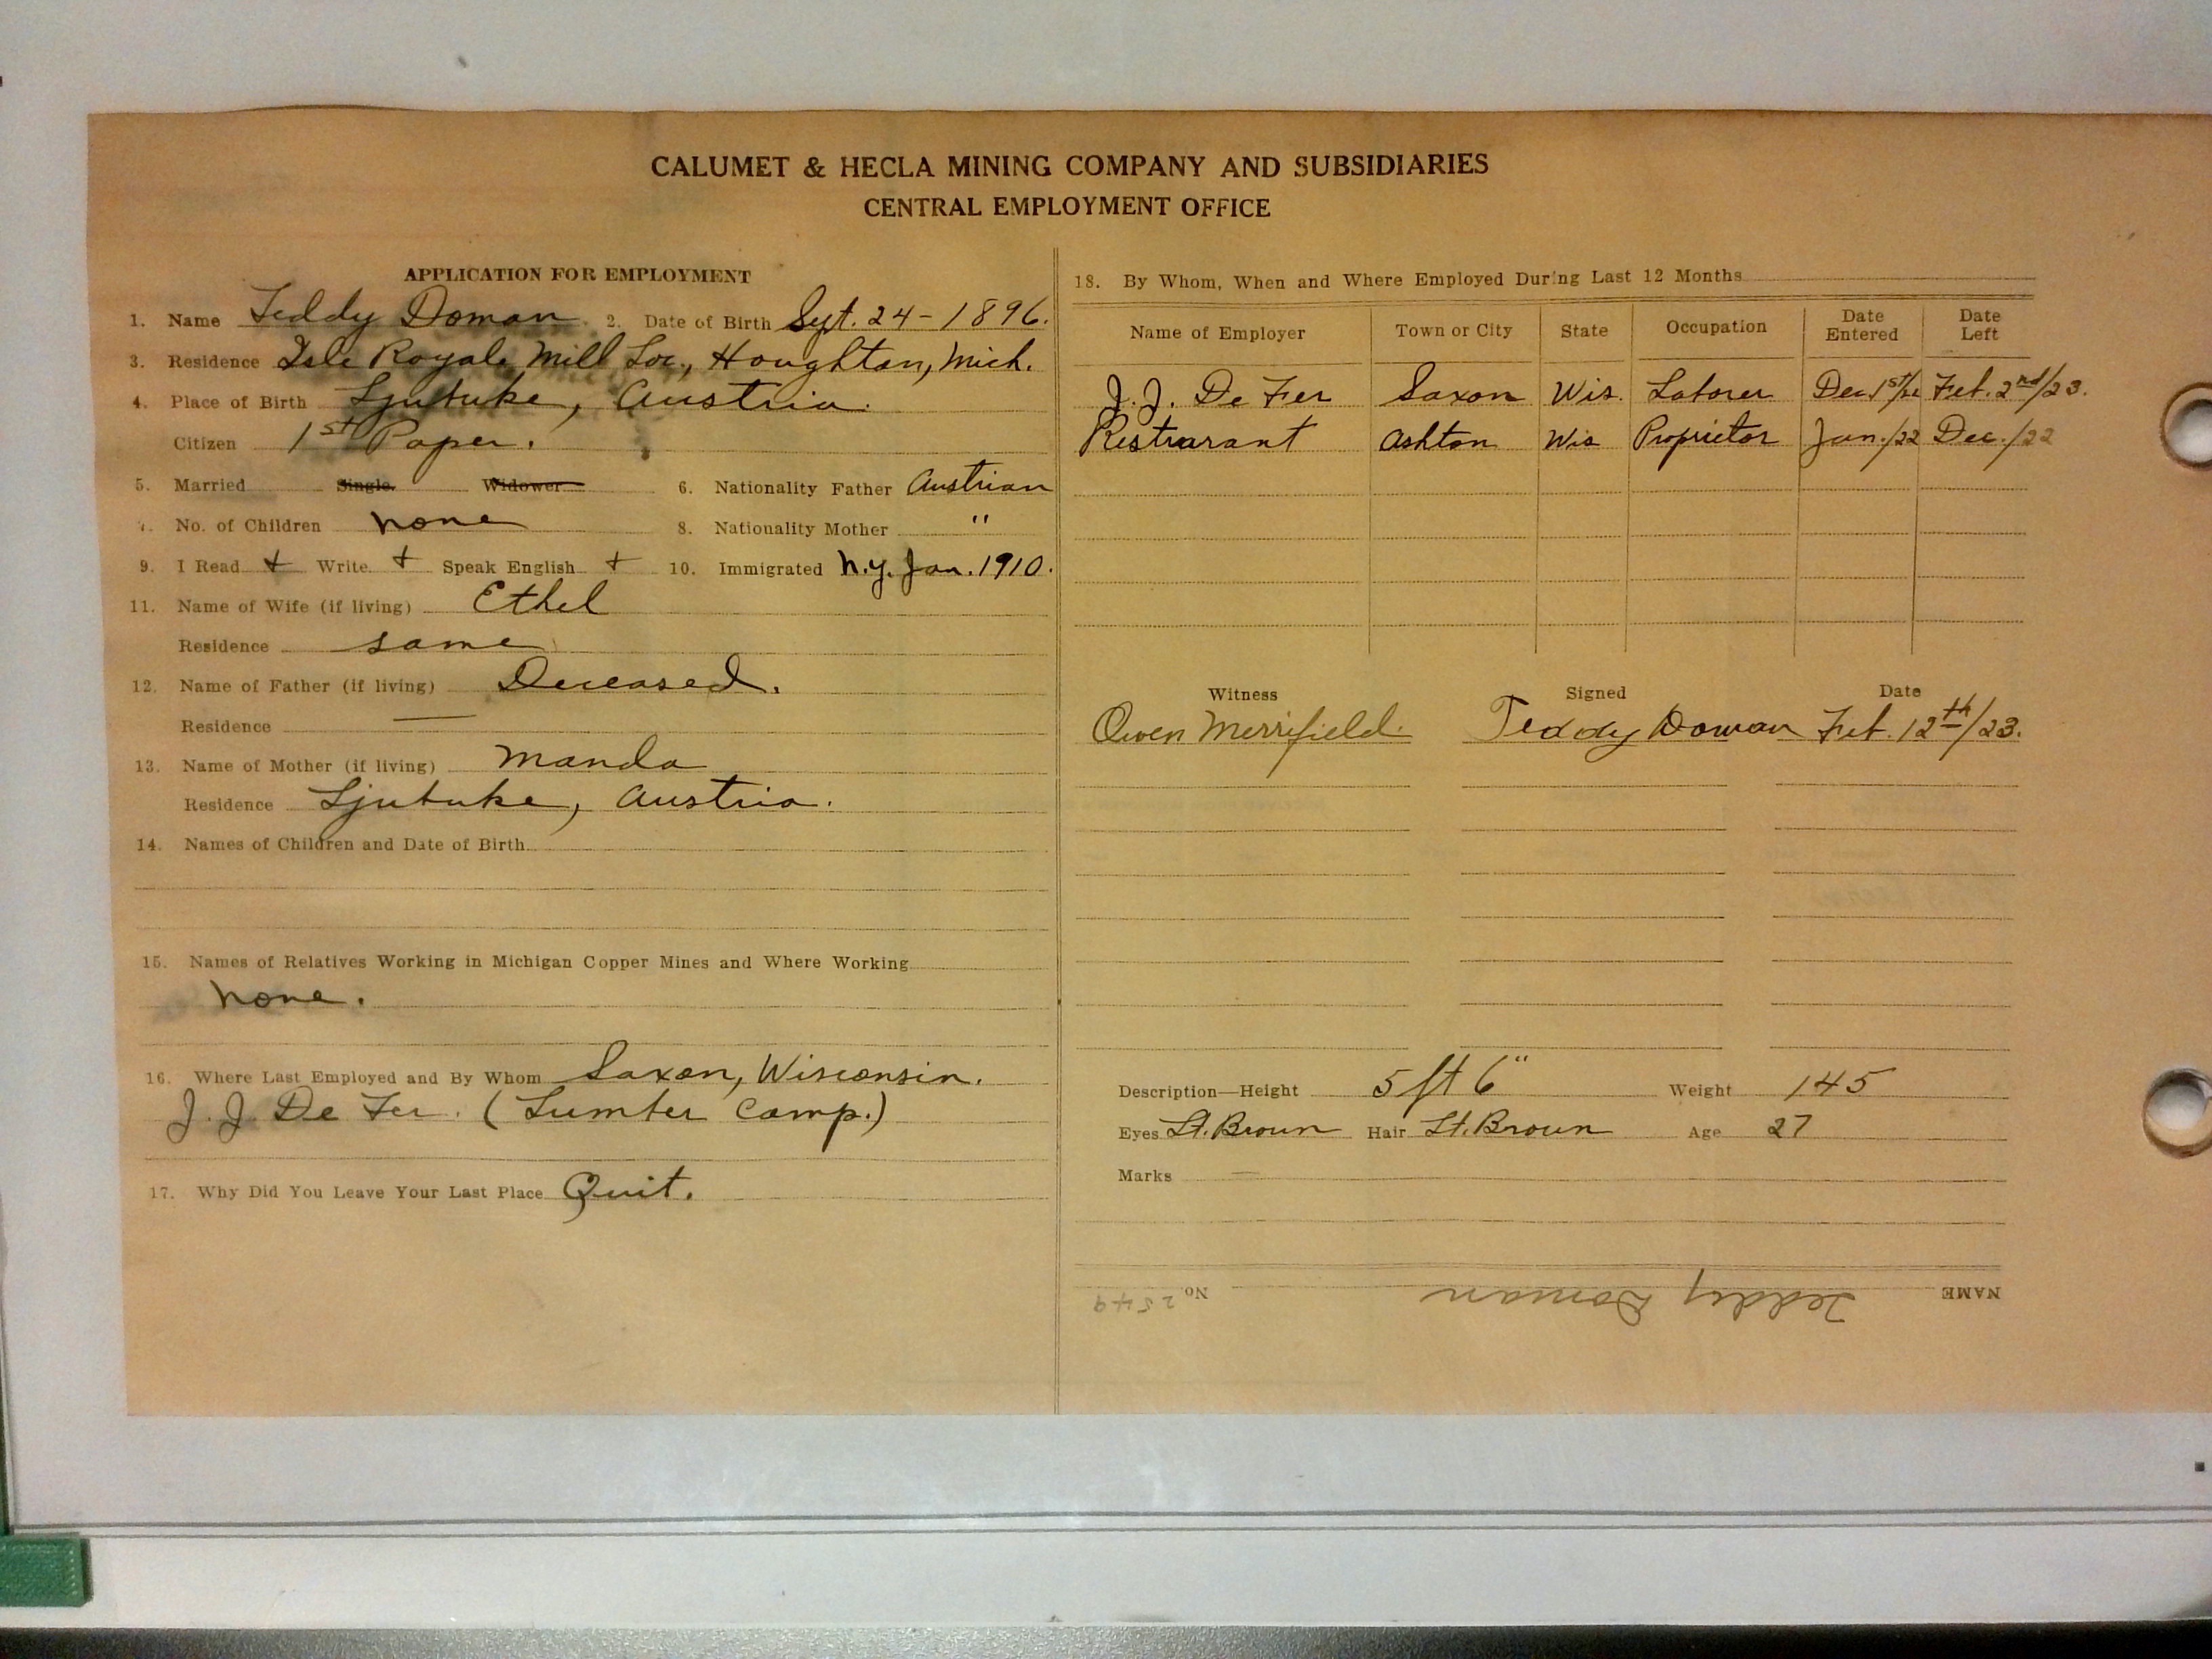 CALUMET & HECLA MINING COMPANY AND SUBSIDIARIES
CENTRAL EMPLOYMENT OFFICE
APPLICATION FOR EMPLOYMENT
1. Name Teddy Doman 2. Date of Birth Sept. 24-1896.
3. Residence Isle Royale Mill Loc., Houghton, Mich.
4. Place of Birth Ljubuke, Austria.
Citizen 1st Paper.
5. Married Single Widower 6. Nationality Father Austrian
7. No. of Children None 8. Nationality Mother "
9. I Read + Write + Speak English + 10. Immigrated N.Y. Jan. 1910.
11. Name of Wife (if living) Ethel
Residence same
12. Name of Father (if living) Deceased.
Residence —
13. Name of Mother (if living) Manda
Residence Ljubuke, Austria.
14. Names of Children and Date of Birth
15. Names of Relatives Working in Michigan Copper Mines and Where Working
None.
16. Where Last Employed and By Whom Saxon, Wisconsin.
J. J. De Fer. (Lumber Camp.)
17. Why Did You Leave Your Last Place Quit.
18. By Whom, When and Where Employed During Last 12 Months
Name of Employer Town or City State Occupation Date Entered Date Left
J. J. De Fer Saxon Wis. Laborer Dec 1st/22 Feb. 2nd/23.
Restuarant Ashton Wis Proprietor Jan./22 Dec./22
Witness Signed Date
Owen Merrifield. Teddy Doman Feb. 12th/23.
Description—Height 5 ft 6" Weight 145
Eyes Lt. Brown Hair Lt. Brown Age 27
Marks —
NAME Teddy Doman No. 2549